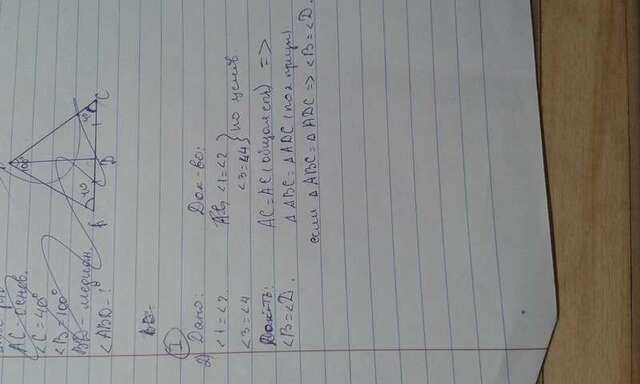 AC - основ.
<C = 40°
<B = 100°
BD - медиан
<ABD - ?
B
D
C
40
BD -
I
2) Дано:
<1 = <2
<3 = <4
Док-ть:
<B = <D.
Док-во:
<1 = <2
<3 = <4 } по услов
AC = AC (общая ) =>
Δ ABC = Δ ADC (по 2 призн)
если Δ ABC = Δ ADC => <B = <D.